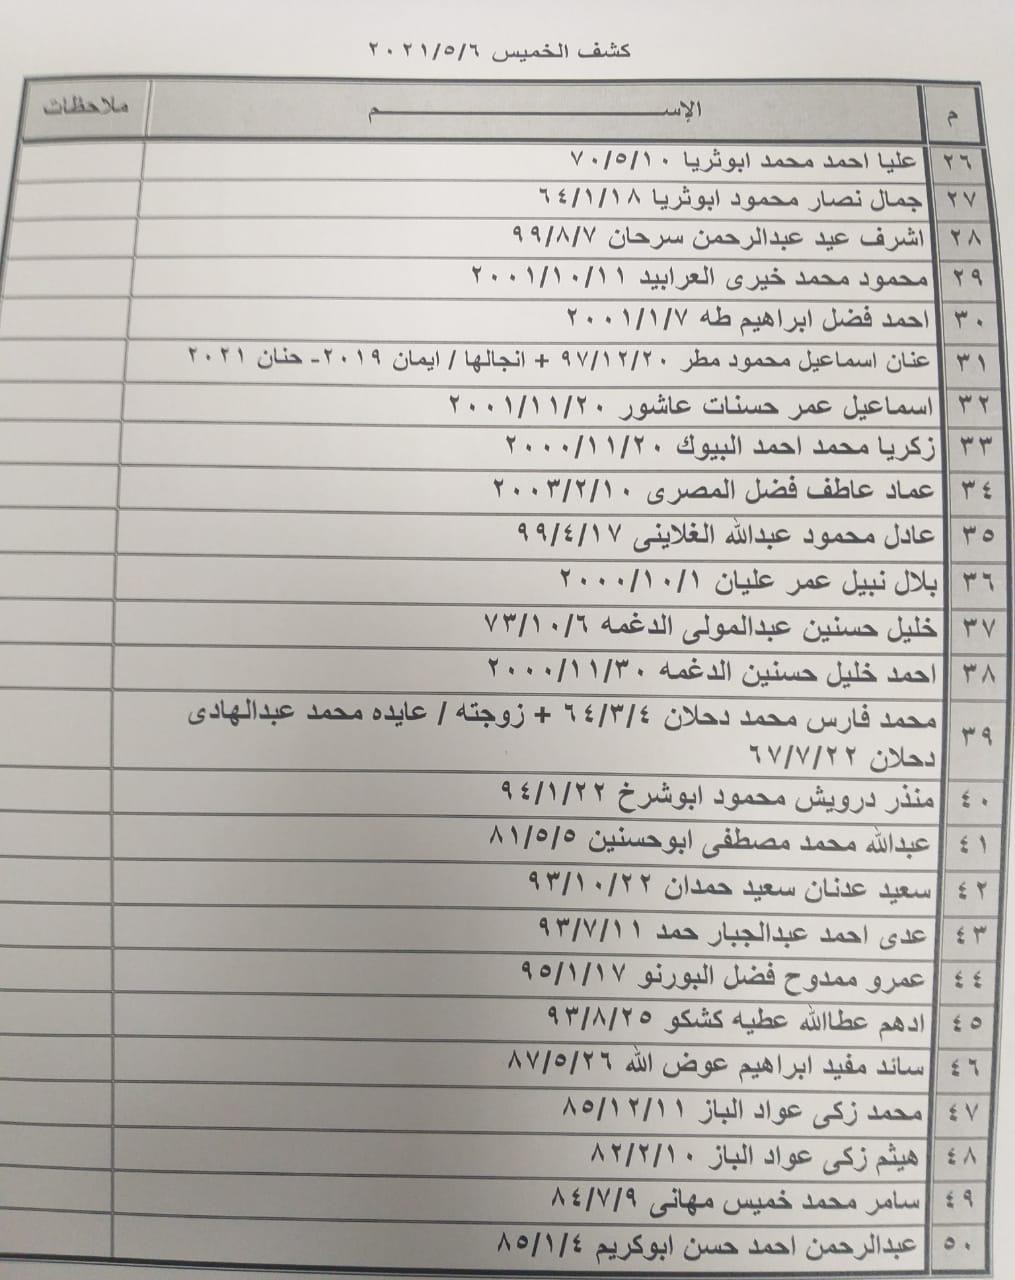 كشف الخميس ٢٠٢١/٥/٦
م الإســـــــــــــــــم ملاحظات
٢٦ عليا احمد محمد ابوثريا ٧٠/٥/١٠
٢٧ جمال نصار محمود ابوثريا ٦٤/١/١٨
٢٨ اشرف عيد عبدالرحمن سرحان ٩٩/٨/٧
٢٩ محمود محمد خيرى العرابيد ٢٠٠١/١٠/١١
٣٠ احمد فضل ابراهيم طه ٢٠٠١/١/٧
٣١ عنان اسماعيل محمود مطر ٩٧/١٢/٢٠ + انجالها / ايمان ٢٠١٩- حنان ٢٠٢١
٣٢ اسماعيل عمر حسنات عاشور ٢٠٠١/١١/٢٠
٣٣ زكريا محمد احمد البيوك ٢٠٠٠/١١/٢٠
٣٤ عماد عاطف فضل المصرى ٢٠٠٣/٢/١٠
٣٥ عادل محمود عبدالله الغلاينى ٩٩/٤/١٧
٣٦ بلال نبيل عمر عليان ٢٠٠٠/١٠/١
٣٧ خليل حسنين عبدالمولى الدغمه ٧٣/١٠/٦
٣٨ احمد خليل حسنين الدغمه ٢٠٠٠/١١/٣٠
٣٩ محمد فارس محمد دحلان ٦٤/٣/٤ + زوجته / عايده محمد عبدالهادى
دحلان ٦٧/٧/٢٢
٤٠ منذر درويش محمود ابوشرخ ٩٤/١/٢٢
٤١ عبدالله محمد مصطفى ابوحسنين ٨١/٥/٥
٤٢ سعيد عدنان سعيد حمدان ٩٣/١٠/٢٢
٤٣ عدى احمد عبدالجبار حمد ٩٣/٧/١١
٤٤ عمرو ممدوح فضل البورنو ٩٥/١/١٧
٤٥ ادهم عطاالله عطيه كشكو ٩٣/٨/٢٥
٤٦ سائد مفيد ابراهيم عوض الله ٨٧/٥/٢٦
٤٧ محمد زكى عواد الباز ٨٥/١٢/١١
٤٨ هيثم زكى عواد الباز ٨٢/٢/١٠
٤٩ سامر محمد خميس مهانى ٨٤/٧/٩
٥٠ عبدالرحمن احمد حسن ابوكريم ٨٥/١/٤